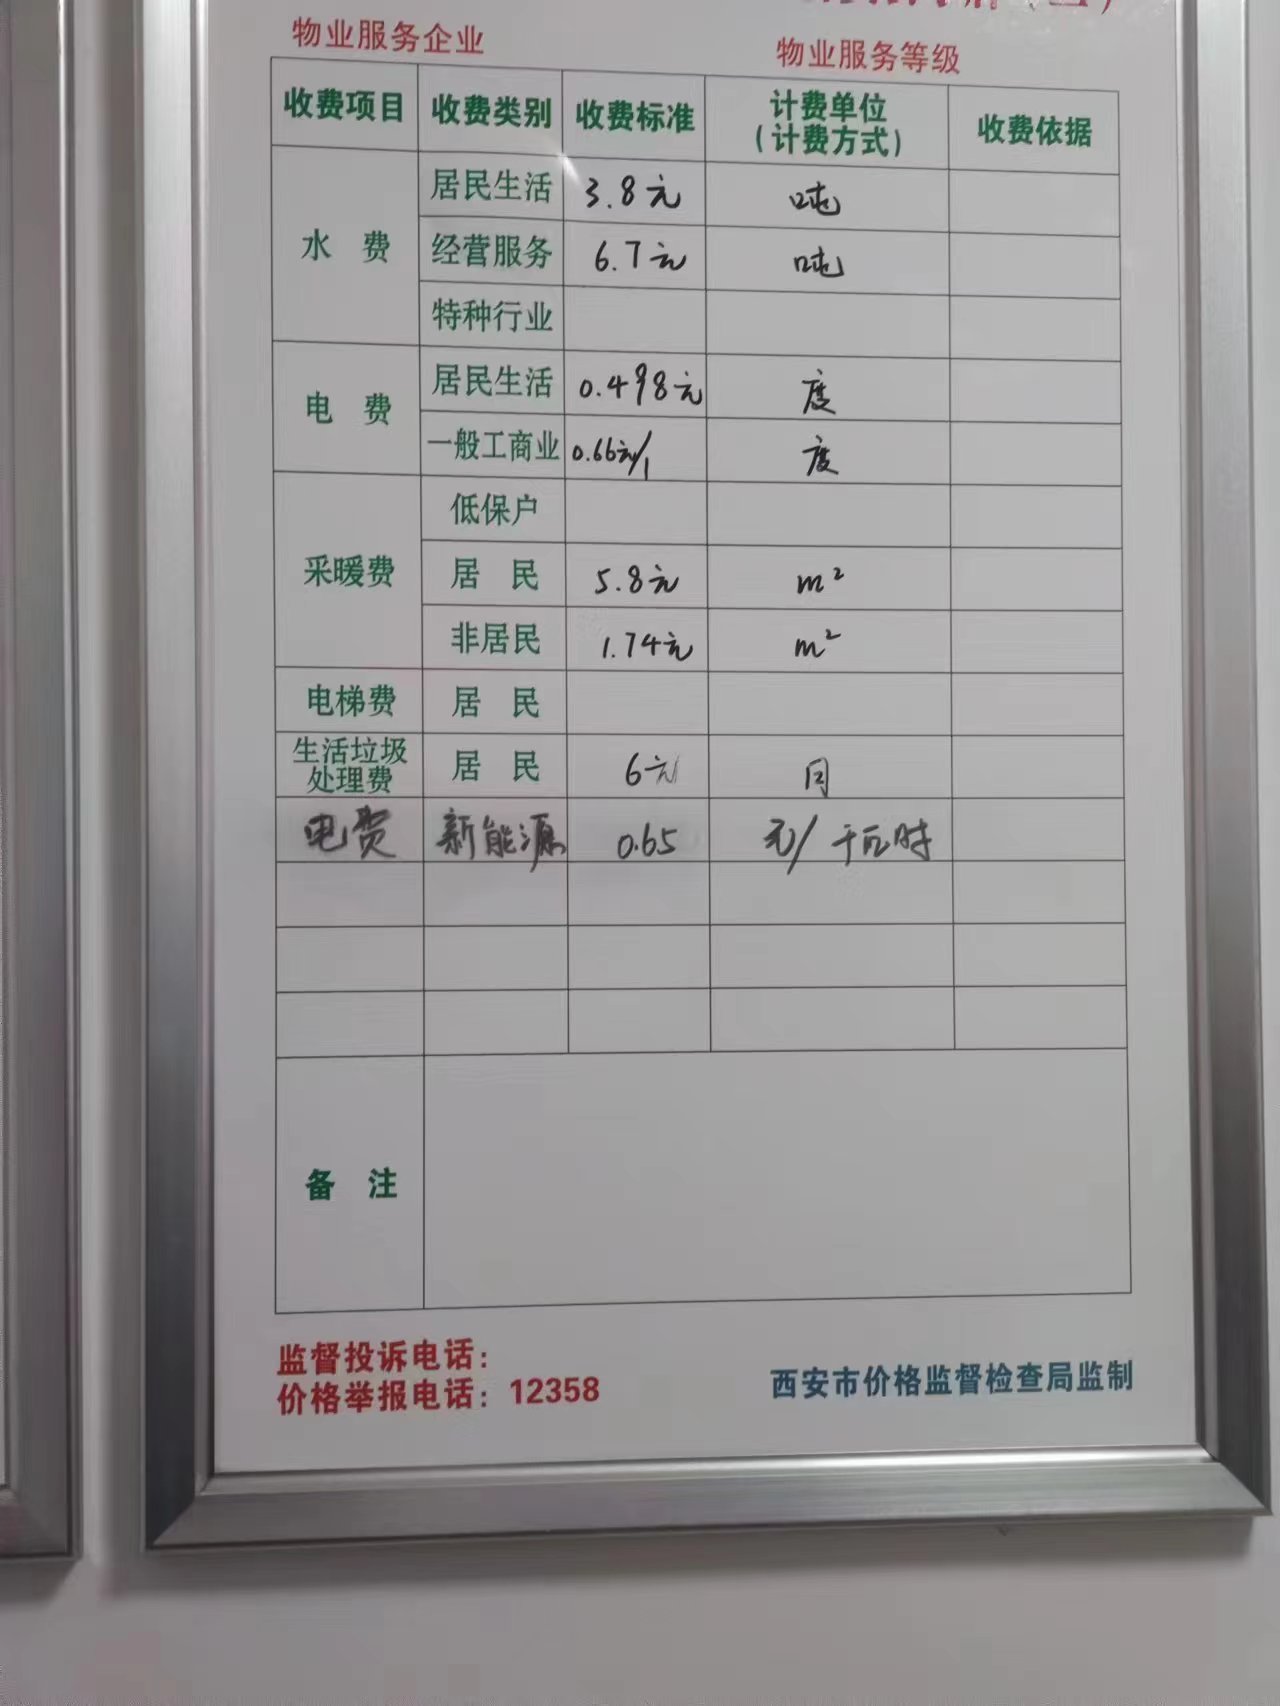 物业服务企业 物业服务等级
收费项目 收费类别 收费标准 计费单位(计费方式) 收费依据
水 费 居民生活 3.8元 吨
经营服务 6.7元 吨
特种行业
电 费 居民生活 0.498元 度
一般工商业 0.66元/ 度
采暖费 低保户
居 民 5.8元 m²
非居民 1.74元 m²
电梯费 居 民
生活垃圾处理费 居 民 6元 月
电费 新能源 0.65 元/千瓦时
备 注
监督投诉电话：
价格举报电话：12358 西安市价格监督检查局监制